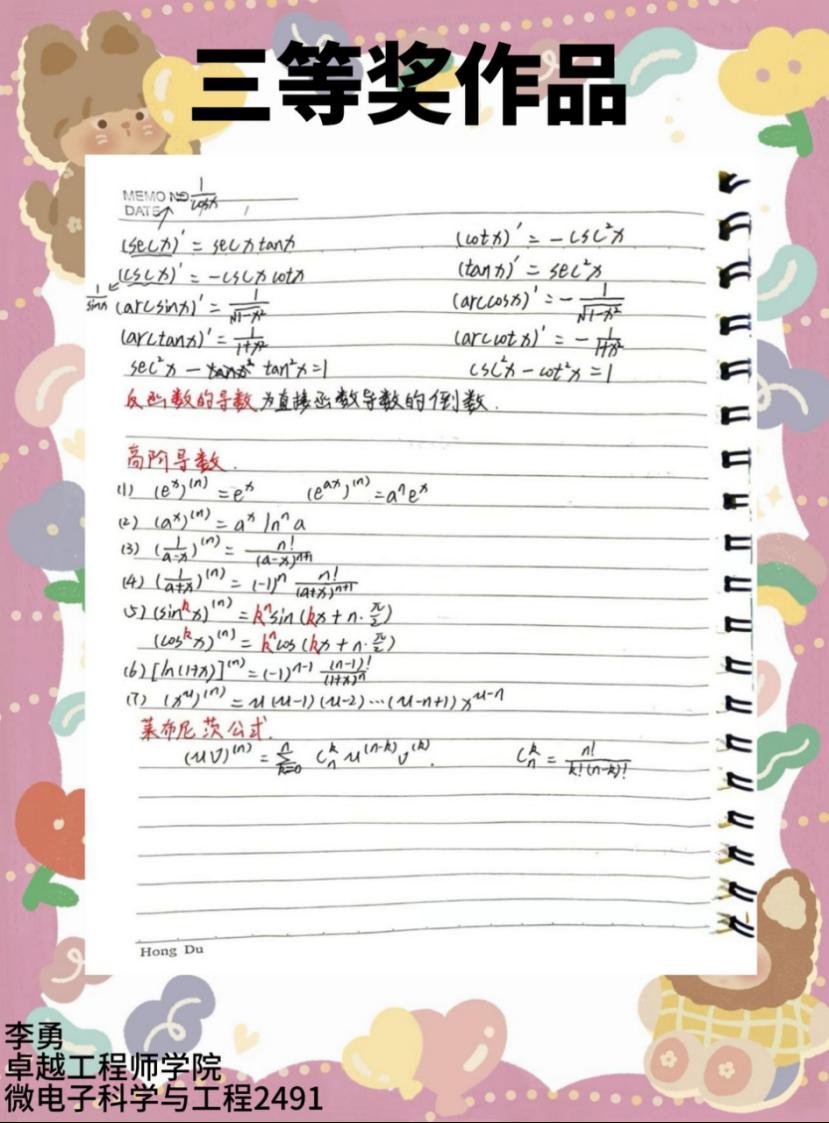 三等奖作品
MEMO NO 1/cosx
DATE / /
(secx)' = secx tanx (cotx)' = -csc²x
(cscx)' = -cscx cotx (tanx)' = sec²x
1/sinx
(arcsinx)' = 1/√(1-x²) (arccosx)' = - 1/√(1-x²)
(arctanx)' = 1/(1+x²) (arccotx)' = - 1/(1+x²)
sec²x - tan²x = 1 csc²x - cot²x = 1
反函数的导数为直接函数导数的倒数.
高阶导数.
(1) (eˣ)⁽ⁿ⁾ = eˣ (eᵃˣ)⁽ⁿ⁾ = aⁿeˣ
(2) (aˣ)⁽ⁿ⁾ = aˣ lnⁿ a
(3) (1/(a-x))⁽ⁿ⁾ = n!/(a-x)ⁿ⁺¹
(4) (1/(a+x))⁽ⁿ⁾ = (-1)ⁿ n!/(a+x)ⁿ⁺¹
5) (sin kx)⁽ⁿ⁾ = kⁿ sin (kx + n·π/2)
(cos kx)⁽ⁿ⁾ = kⁿ cos (kx + n·π/2)
(6) [ln(1+x)]⁽ⁿ⁾ = (-1)ⁿ⁻¹ (n-1)!/(1+x)ⁿ
(7) (xᵘ)⁽ⁿ⁾ = u(u-1)(u-2)···(u-n+1) xᵘ⁻ⁿ
莱布尼茨公式.
(uv)⁽ⁿ⁾ = Σₖ₌₀ⁿ Cₙᵏ u⁽ⁿ⁻ᵏ⁾ v⁽ᵏ⁾. Cₙᵏ = n!/(k!(n-k)!)
Hong Du
李勇
卓越工程师学院
微电子科学与工程2491